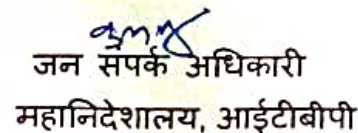 जन संपर्क अधिकारी
महानिदेशालय, आईटीबीपी